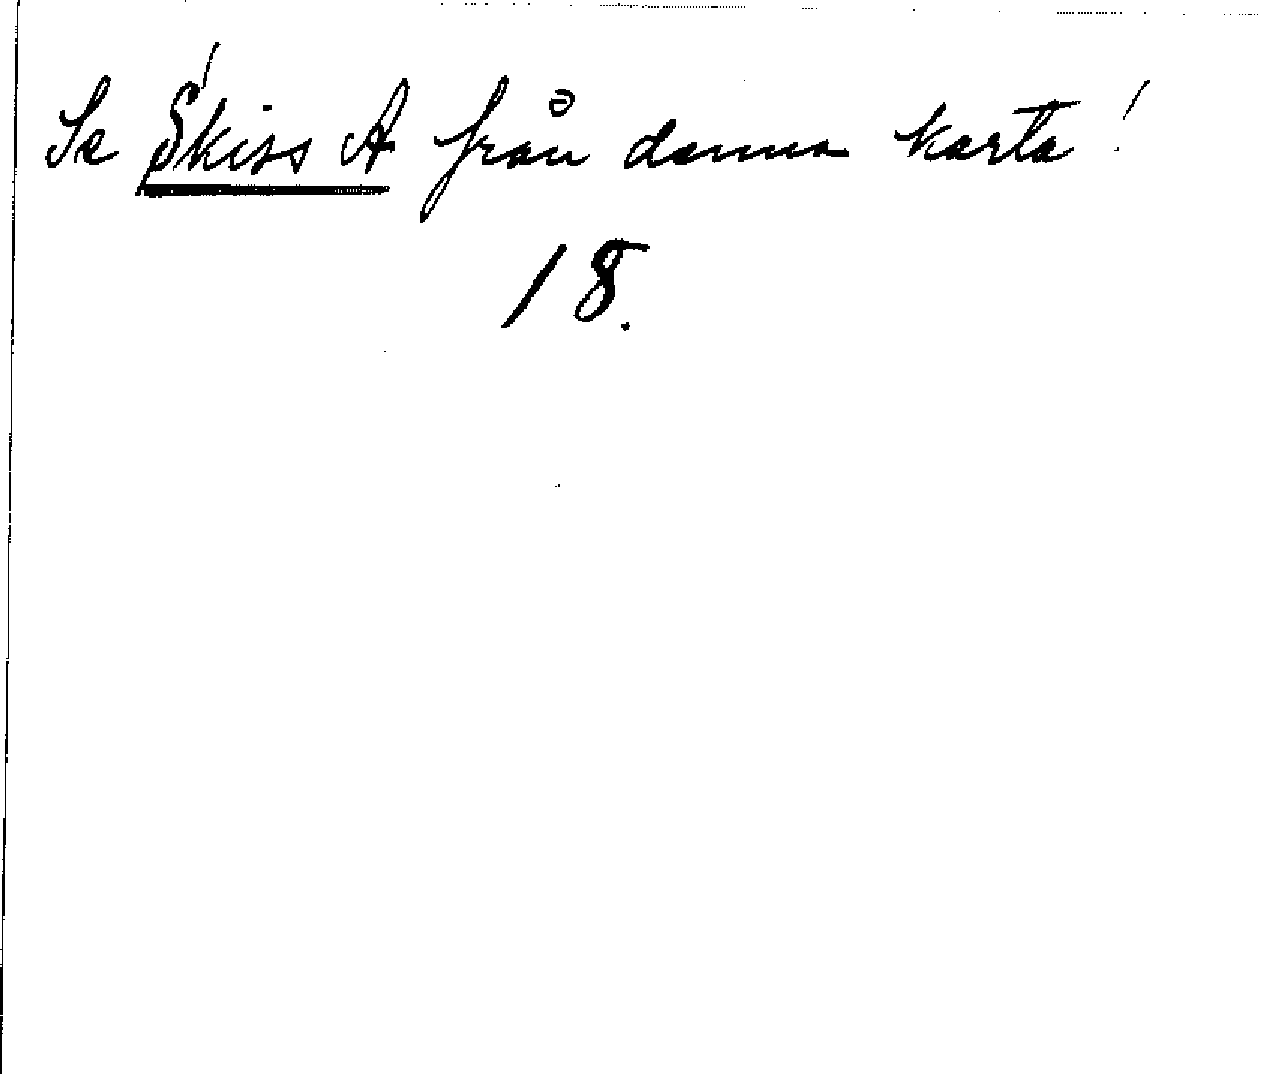 Se Skiss A från denna karta!
18.